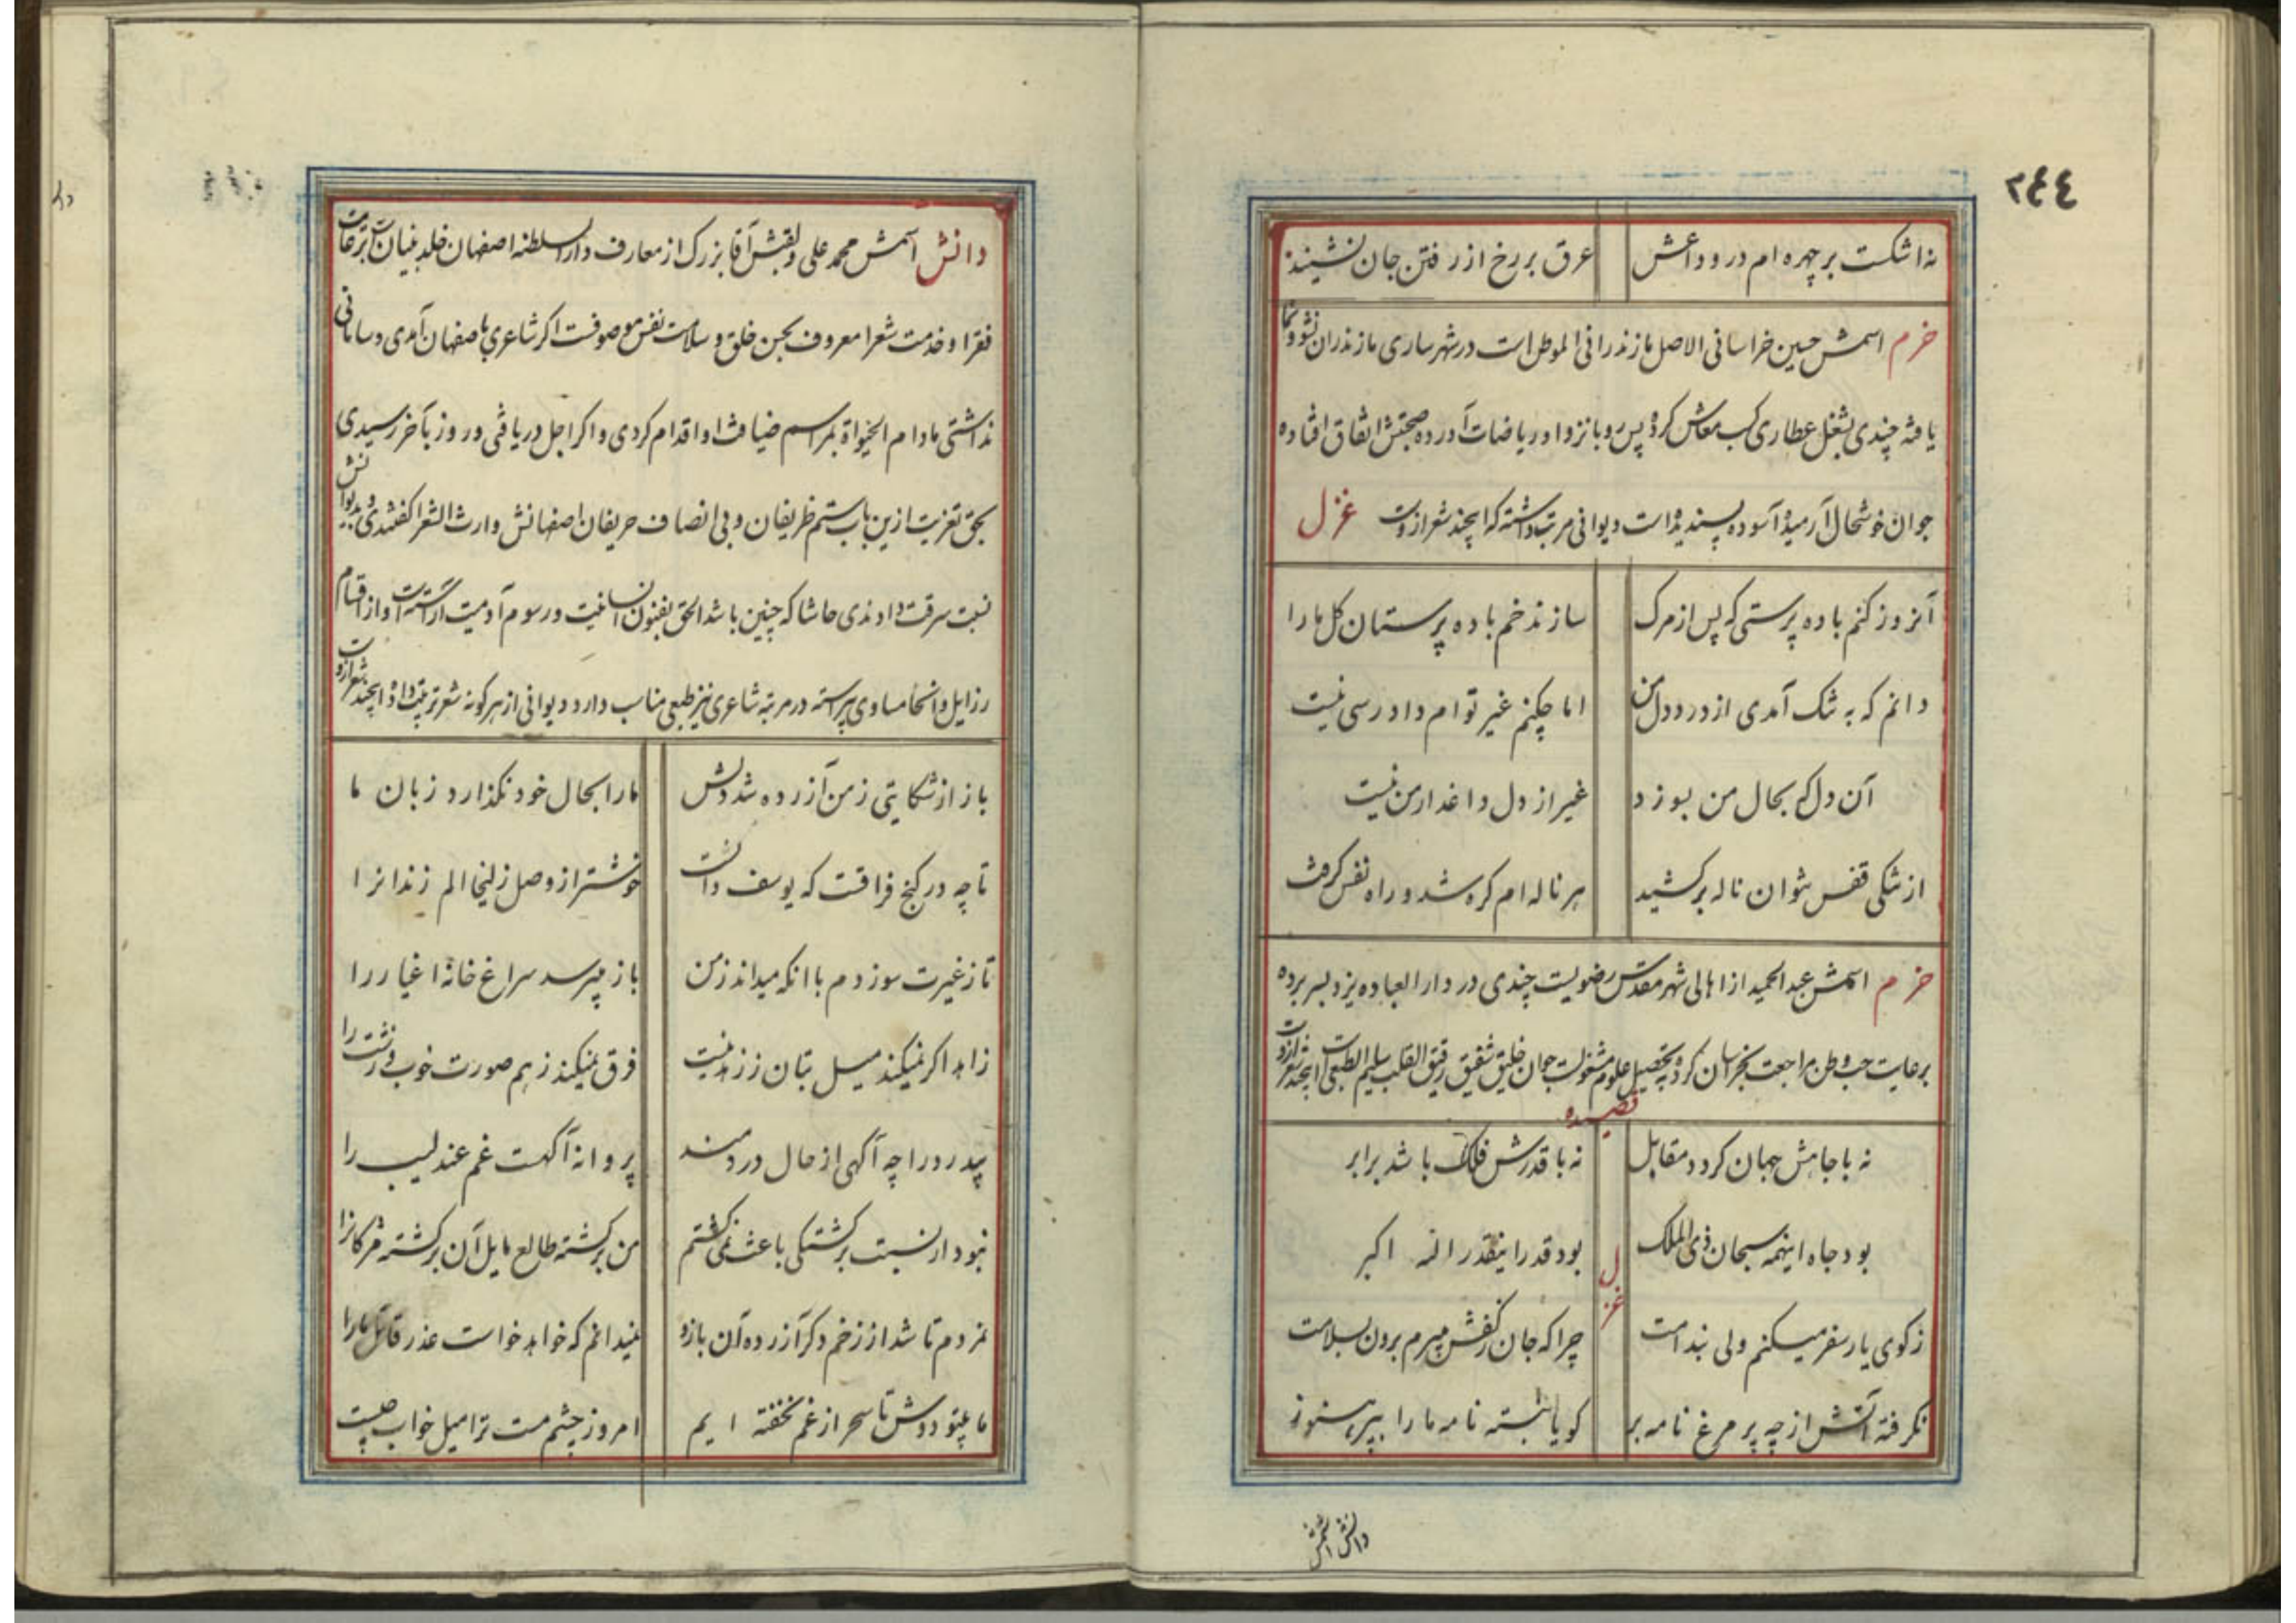 ٢٤٤
نه اشکست بر چهره ام در وداعش عرق بر رخ از رفتن جان نشیند
خرم اسمش حسین خراسانی الاصل مازندرانی الموطن است در شهر ساری مازندران نشو و نما
یافته چندی بشغل عطاری کسب معاش کرده پس رو بانزوا و ریاضات آورده صحبتش اتفاق افتاده
جوان خوشحال آرمیده آسوده پسندیده است دیوانی مرتب داشته که اینچند شعر ازوست غزل
آنروز کنم باده پرستی که پس از مرک سازند خم باده پرستان کل ما را
دانم که به تنک آمدی از درد دل من اما چکنم غیر توام دادرسی نیست
آن دل که بحال من بسوزد غیر از دل داغدار من نیست
از تنکی قفس نتوان ناله برکشید هر ناله ام کره شد و راه نفس کرفت
خرم اسمش عبد الحمید از اهالی شهر مقدس رضویست چندی در دار العباده یزد بسر برده
برعایت حب وطن مراجعت بخراسان کرده بتحصیل علوم مشغولست جوان خلیق شفیق رقیق القلب سلیم الطبعی است اینچند شعر ازوست
قصیده
نه با جاهش جهان کردد مقابل نه با قدرش فلک باشد برابر
بود جاه اینهمه سبحان ذی الملک بود قدر اینقدر الله اکبر
غزل
ز کوی یار سفر میکنم ولی بندامت چرا که جان ز کفش میبرم برون بسلامت
نکرفته آتش از چه پر مرغ نامه بر کویا نبسته نامه ما را ببر هنوز
دانش اسمش
دانش اسمش محمد علی و لقبش آقا بزرک از معارف دار السلطنه اصفهان خلد بنیان است برعایت
فقرا و خدمت شعرا معروف بحسن خلق و سلامت نفس موصوفست اکر شاعری باصفهان آمدی و سامانی
نداشتی مادام الحیوة بمراسم ضیافت او اقدام کردی و اکر اجل دریافتی و روز بآخر رسیدی
بحق تعزیت ازین باب ستم ظریفان و بی انصاف حریفان اصفهانش وارث الشعرا کفتندی و بدیوانش
نسبت سرقت دادندی حاشا که چنین باشد الحق بفنون انسانیت و رسوم آدمیت آراسته است و از اقسام
رزایل و انحا مساوی پیراسته در مرتبه شاعری نیز طبعی مناسب دارد دیوانی از هر کونه شعر ترتیب داده اینچند شعر ازوست
باز از شکایتی ز من آزرده شد دلش ما را بحال خود نکذارد زبان ما
تا چه در کنج فراقت که یوسف دانست خوشتر از وصل زلیخا الم زندانرا
تا ز غیرت سوزدم با آنکه میداند ز من باز میپرسد سراغ خانه اغیار را
زاهد اکر نمیکند میل بتان ز زهد نیست فرق نمیکند ز هم صورت خوب و زشت را
بیدرد را چه آکهی از حال دردمند پروانه آکهست غم عندلیب را
نبود ار نسبت برکشتکی باعث نمی کشتم من برکشته طالع مایل آن برکشته مژکانرا
نمردم تا شد از زخم دکر آزرده آن بازو نمیدانم که خواهد خواست عذر قاتل ما را
ما بیتو دوش تا سحر از غم نخفته ایم امروز چشم مست ترا میل خواب چیست